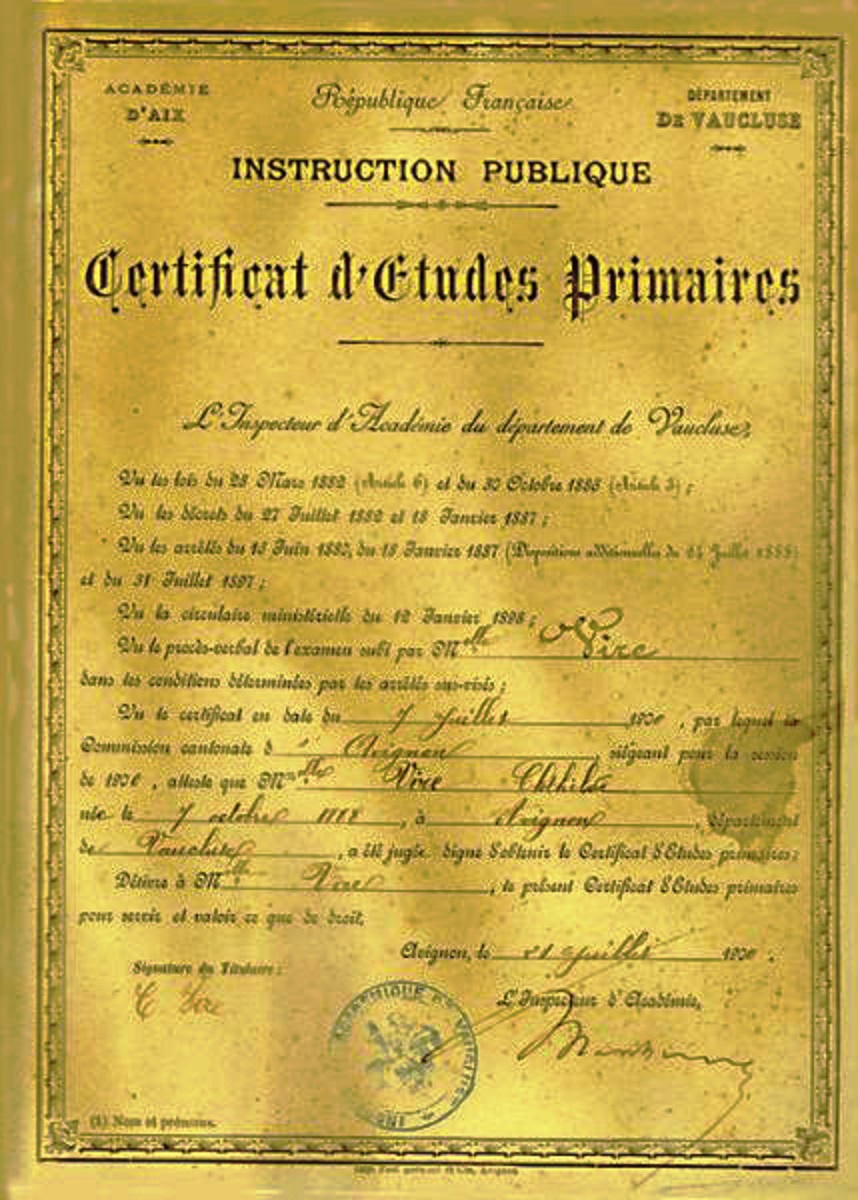 ACADÉMIE
D'AIX
République Française
DÉPARTEMENT
DE VAUCLUSE
INSTRUCTION PUBLIQUE
Certificat d'Etudes Primaires
L'Inspecteur d'Académie du département de Vaucluse,
Vu les lois du 28 Mars 1882 (Article 6) et du 30 Octobre 1886 (Article 3) ;
Vu les décrets du 27 Juillet 1882 et 18 Janvier 1887 ;
Vu les arrêtés du 18 Janvier 1887 (Dispositions additionnelles du 24 Juillet 1888)
et du 31 Juillet 1897 ;
Vu la circulaire ministérielle du 12 Janvier 1898 ;
Vu le procès-verbal de l'examen subi par Melle Vire
dans les conditions déterminées par les arrêtés sus-visés ;
Vu le certificat en date du 7 Juillet 1900, par lequel la
Commission cantonale d'Avignon, siégeant pour la session
de 1900, atteste que Melle Vire
née le 7 octobre, à Avignon, département
de Vaucluse, a été jugée digne d'obtenir le Certificat d'Etudes primaires ;
Délivré à Melle Vire, le présent Certificat d'Etudes primaires
pour servir et valoir ce que de droit.
Avignon, le 21 Juillet 1900.
Signature du Titulaire :
C Vire
L'Inspecteur d'Académie,
ACADÉMIQUE DE VAUCLUSE
(1) Nom et prénoms.